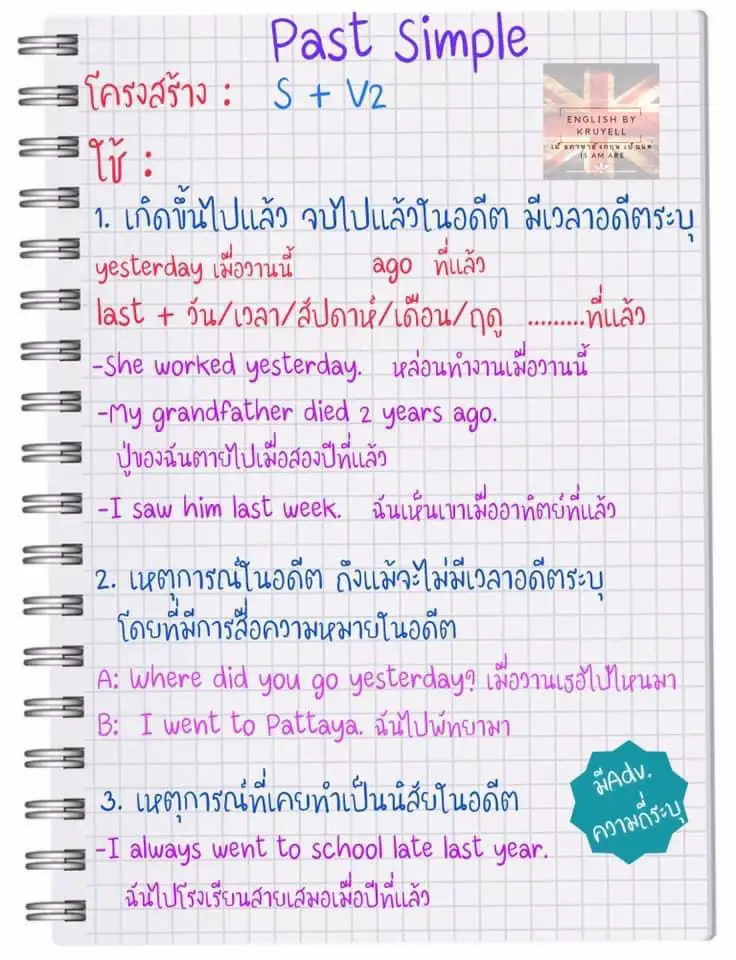 Past Simple
โครงสร้าง : S + V2
ENGLISH BY
KRUYELL
IS AM ARE
ใช้ :
1. เกิดขึ้นไปแล้ว จบไปแล้วในอดีต มีเวลาอดีตระบุ
yesterday เมื่อวานนี้ ago ที่แล้ว
last + วัน/เวลา/สัปดาห์/เดือน/ฤดู .........ที่แล้ว
-She worked yesterday. หล่อนทำงานเมื่อวานนี้
-My grandfather died 2 years ago.
ปู่ของฉันตายไปเมื่อสองปีที่แล้ว
-I saw him last week. ฉันเห็นเขาเมื่ออาทิตย์ที่แล้ว
2. เหตุการณ์ในอดีต ถึงแม้จะไม่มีเวลาอดีตระบุ
โดยที่มีการสื่อความหมายในอดีต
A: Where did you go yesterday? เมื่อวานเธอไปไหนมา
B: I went to Pattaya. ฉันไปพัทยามา
3. เหตุการณ์ที่เคยทำเป็นนิสัยในอดีต
มีAdv.
ความถี่ระบุ
-I always went to school late last year.
ฉันไปโรงเรียนสายเสมอเมื่อปีที่แล้ว